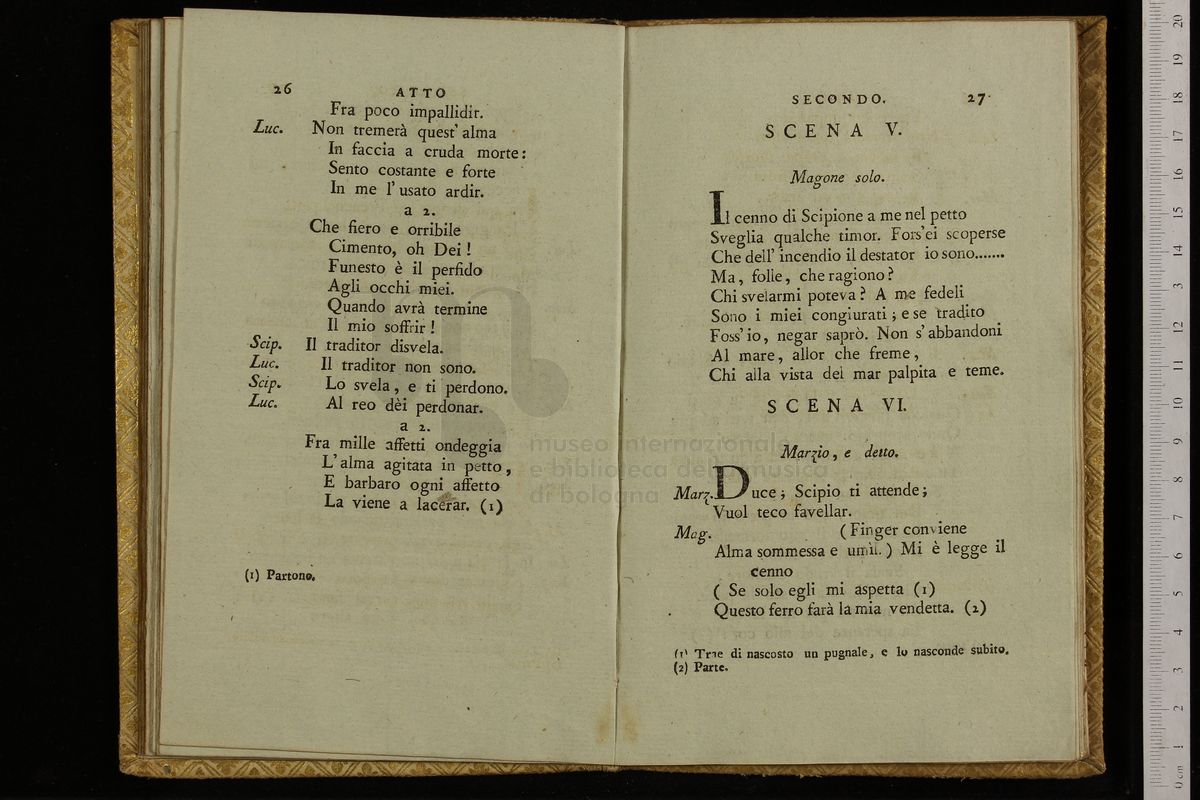 26 ATTO
Fra poco impallidir.
Luc. Non tremerà quest' alma
In faccia a cruda morte:
Sento costante e forte
In me l' usato ardir.
a 2.
Che fiero e orribile
Cimento, oh Dei!
Funesto è il perfido
Agli occhi miei.
Quando avrà termine
Il mio soffrir!
Scip. Il traditor disvela.
Luc. Il traditor non sono.
Scip. Lo svela, e ti perdono.
Luc. Al reo dèi perdonar.
a 2.
Fra mille affetti ondeggia
L' alma agitata in petto,
E barbaro ogni affetto
La viene a lacerar. (1)
(1) Partono.
SECONDO. 27
SCENA V.
Magone solo.
Il cenno di Scipione a me nel petto
Sveglia qualche timor. Fors' ei scoperse
Che dell' incendio il destator io sono.......
Ma, folle, che ragiono?
Chi svelarmi poteva? A me fedeli
Sono i miei congiurati; e se tradito
Foss' io, negar saprò. Non s' abbandoni
Al mare, allor che freme,
Chi alla vista del mar palpita e teme.
SCENA VI.
Marzio, e detto.
Marz. Duce; Scipio ti attende;
Vuol teco favellar.
Mag. (Finger conviene
Alma sommessa e umìl.) Mi è legge il
cenno
(Se solo egli mi aspetta (1)
Questo ferro farà la mia vendetta. (2)
(1) Trae di nascosto un pugnale, e lo nasconde subito.
(2) Parte.
museo internazionale
e biblioteca della musica
di bologna
0 cm 1 2 3 4 5 6 7 8 9 10 11 12 13 14 15 16 17 18 19 20